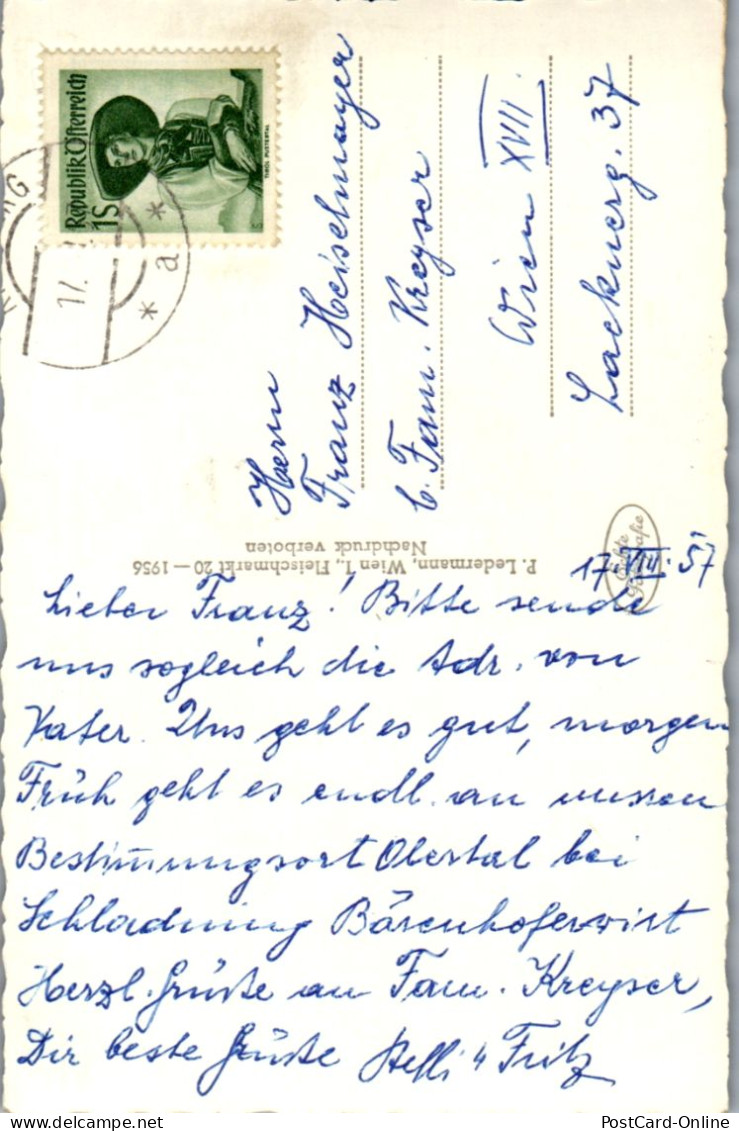 Republik Österreich
1S
TIROL PUSTERTAL
17.
* a *
Herrn
Franz Heiselmayer
b. Fam. Kreyser
Wien XVII.
Lacknerg. 37
P. Ledermann, Wien I., Fleischmarkt 20 — 1956
Nachdruck verboten
Echte
17. VIII. 57
Lieber Franz! Bitte sende
uns sogleich die Adr. von
Vater. Uns geht es gut, morgen
Früh geht es endl. an unseren
Bestimmungsort Obertal bei
Schladming Bärenhoferwirt
Herzl. Grüße an Fam. Kreyser,
Dir beste Grüße Steffi u Fritz
PostCard-Online